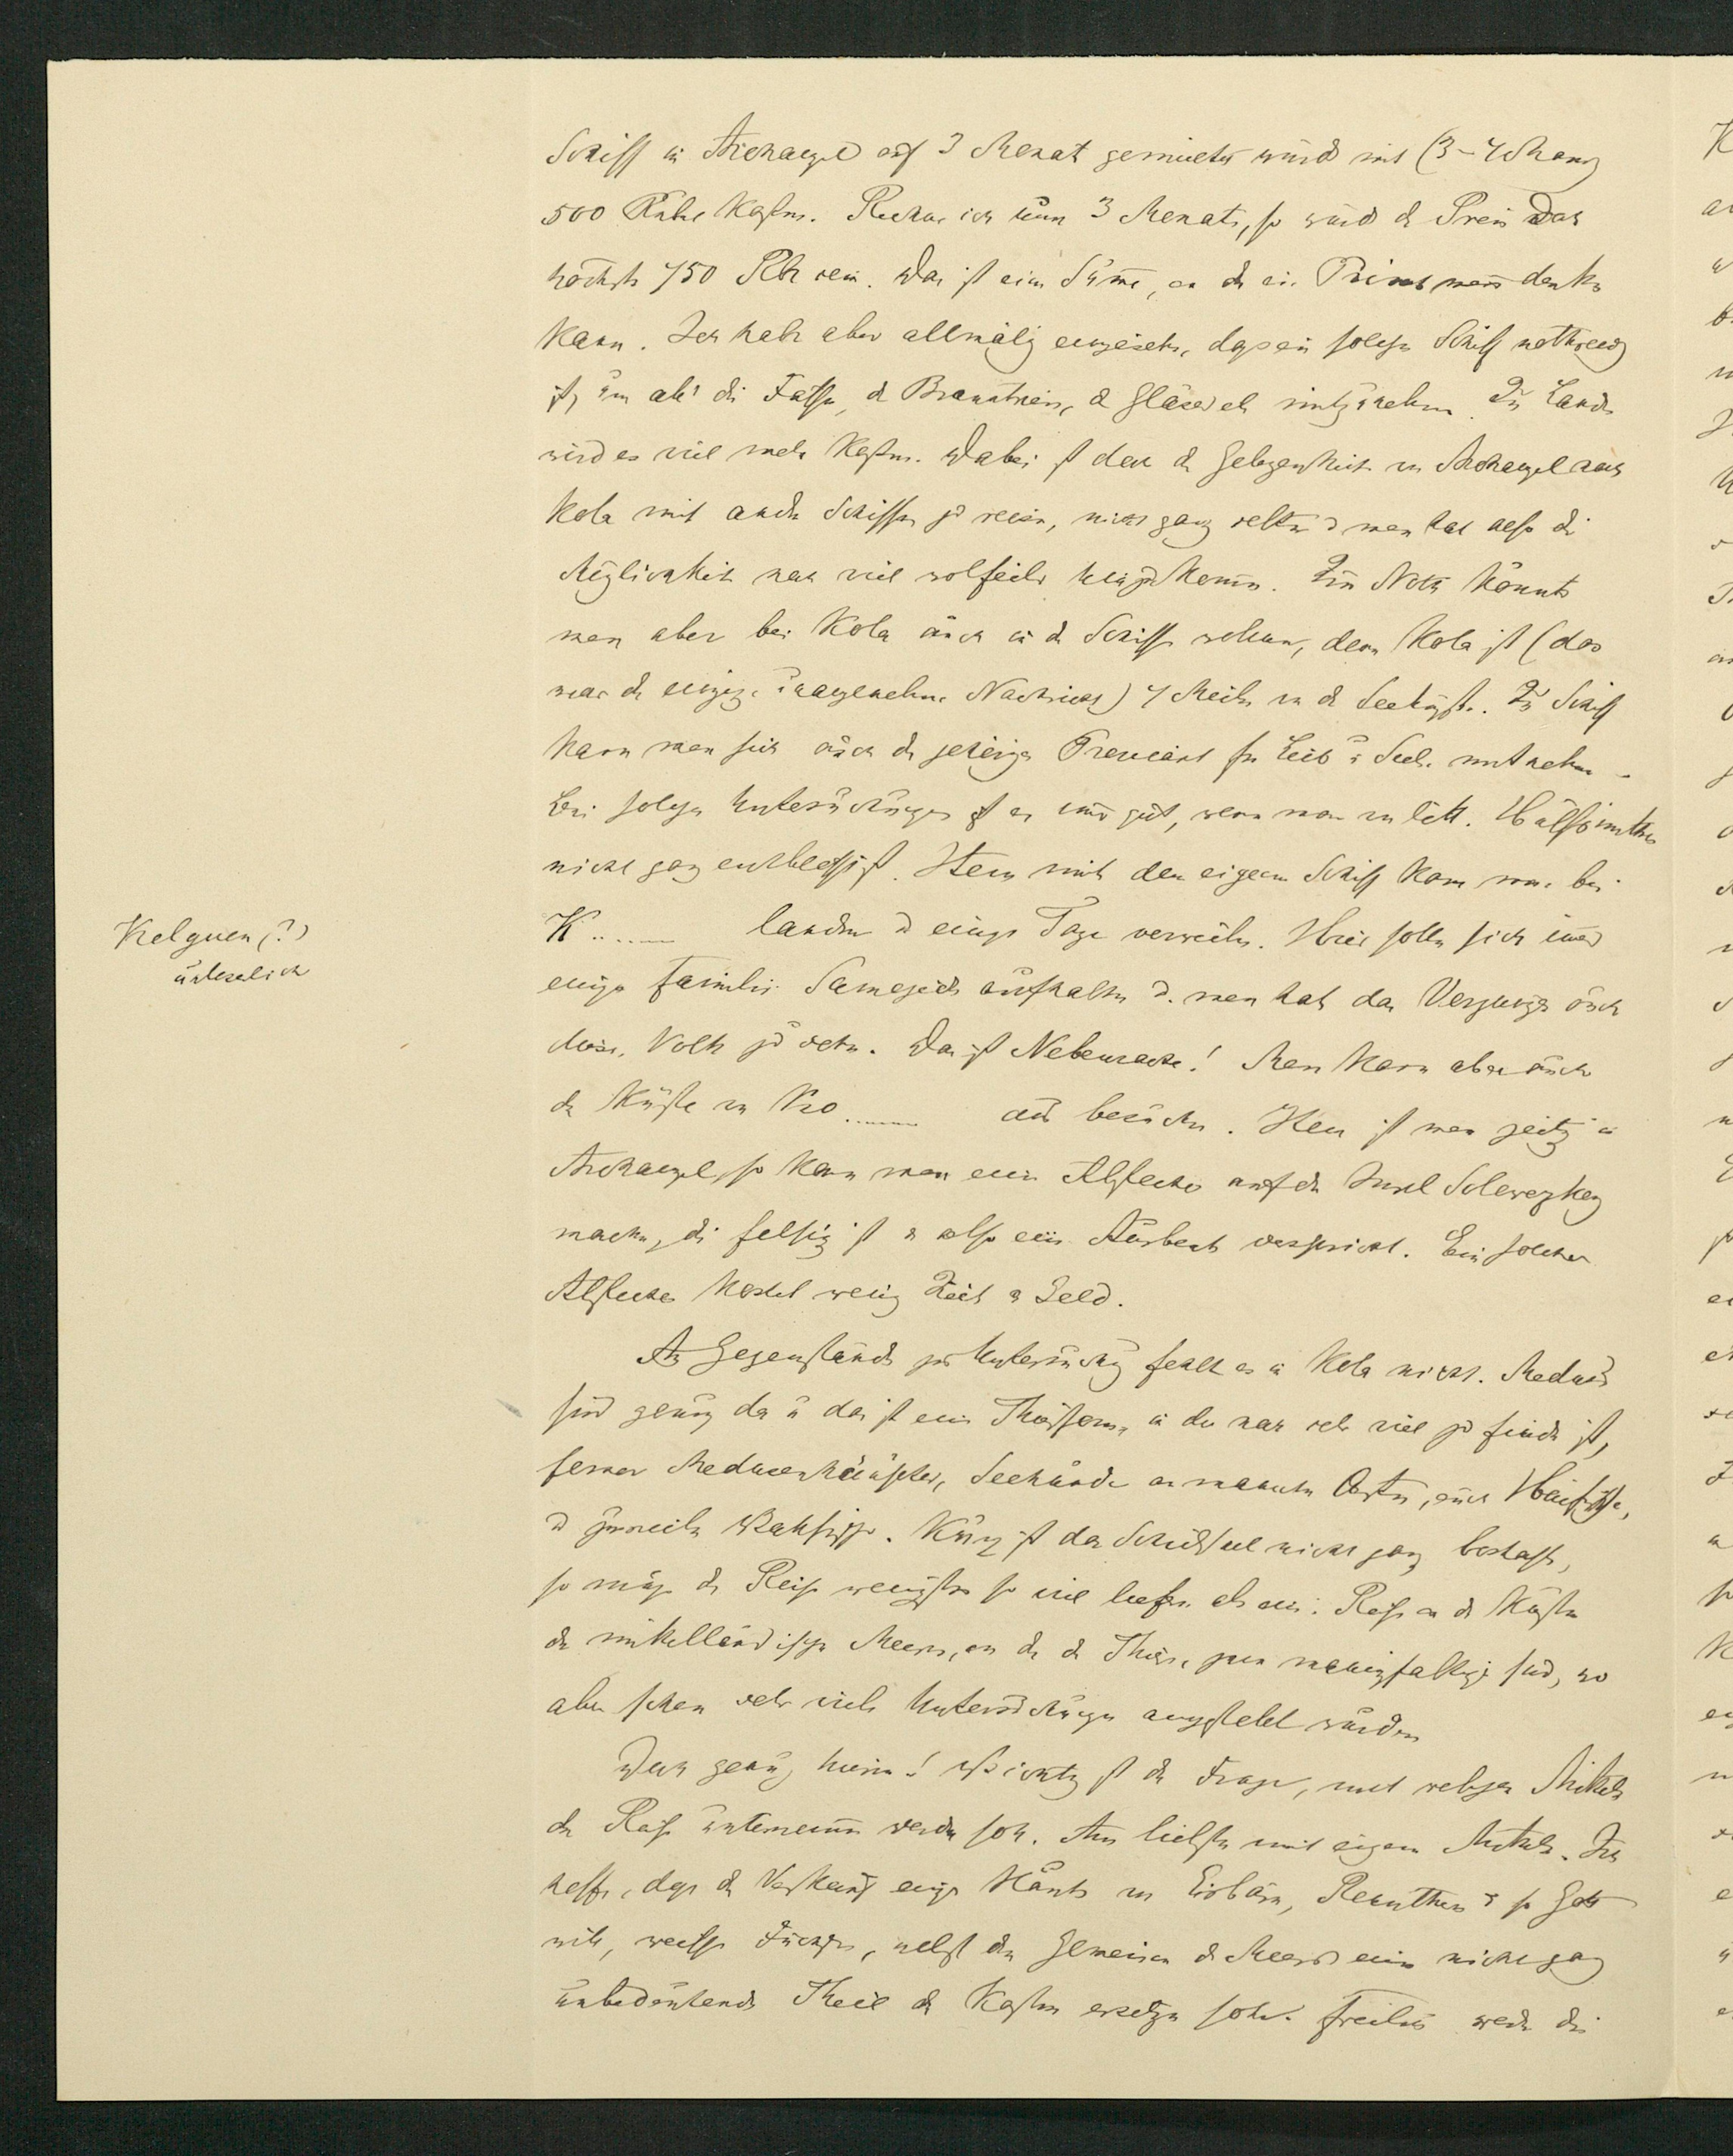 Schiff in Archangel auf 3 Monat gemietet würde mit (3–4 Mann)
500 Rubel kosten. Rechne ich nun 3 Monate, so würde d Preis doch
höchstens 750 Rbl sein. Das ist eine Summe, an die ein Privatmann denken
kann. Ich habe aber allmälig eingesehen, dass ein solches Schiff nothwendig
ist, um alle die Fässer, d Branntwein, d Gläser etc mitzunehmen. Zu Lande
wird es viel mehr kosten. Dabei ist denn die Gelegenheit von Archangel nach
Kola mit andern Schiffen zu reisen, nicht ganz selten u man hat also die
Möglichkeit noch viel wolfeiler hinzukommen. Zur Noth könnte
man aber bei Kola auch in d Schiffe wohnen, denn Kola ist (das
war die einzige unangenehme Nachricht) 4 Meilen von d Seeküste. Zu Schiff
kann man sich auch den gehörigen Proviant für Leib u Seele mitnehmen –
Bei solchen Untersuchungen ist es immer gut, wenn man von litt. Hülfsmitteln
nicht ganz entblösst ist. Item mit dem eigenen Schiff kann man bei
K...... landen u einige Tage verweilen. Hier sollen sich immer
einige Familien Samojeden aufhalten u. man hat das Vergnügen auch
dieses Volk zu sehen. Das ist Nebensache! Man kann aber auch
die Küste von Ko....... aus besuchen. Item ist man zeitig in
Archangel, so kann man einen Abstecher auf die Insel Solowezkoy
machen, die felsig ist u also eine Ausbeute verspricht. Ein solcher
Abstecher kostet wenig Zeit u Geld.
An Gegenständen zur Untersuchung fehlt es in Kola nicht. Medusen
sind genug da u das ist eine Thierform, in der noch sehr viel zu finden ist,
ferner Medusenhäupter, Seehunde an manchen Orten, auch Haifische,
u zuweilen Wallfische. Kurz ist das Schicksal nicht ganz boshaft,
so muss die Reise wenigstens so viel liefern als eine Reise an d Küsten
des mittelländischen Meeres, an der d Thiere zwar mannigfaltiger sind, wo
aber schon sehr viele Untersuchungen angestellt wurden
Doch genug hievon! Wichtig ist die Frage, mit welchen Mitteln
die Reise unternommen werden soll. Am liebsten mit eigenen Mitteln. Ich
hoffe, dass der Verkauf einiger Häute von Eisbären, Rennthieren u so Gott
will, weisse Füchse, nebst den Gemeinen d Meeres einen nicht ganz
unbedeutenden Theil der Kosten ersetzen sollen. Freilich werden die
Kelguen (?)
unleserlich